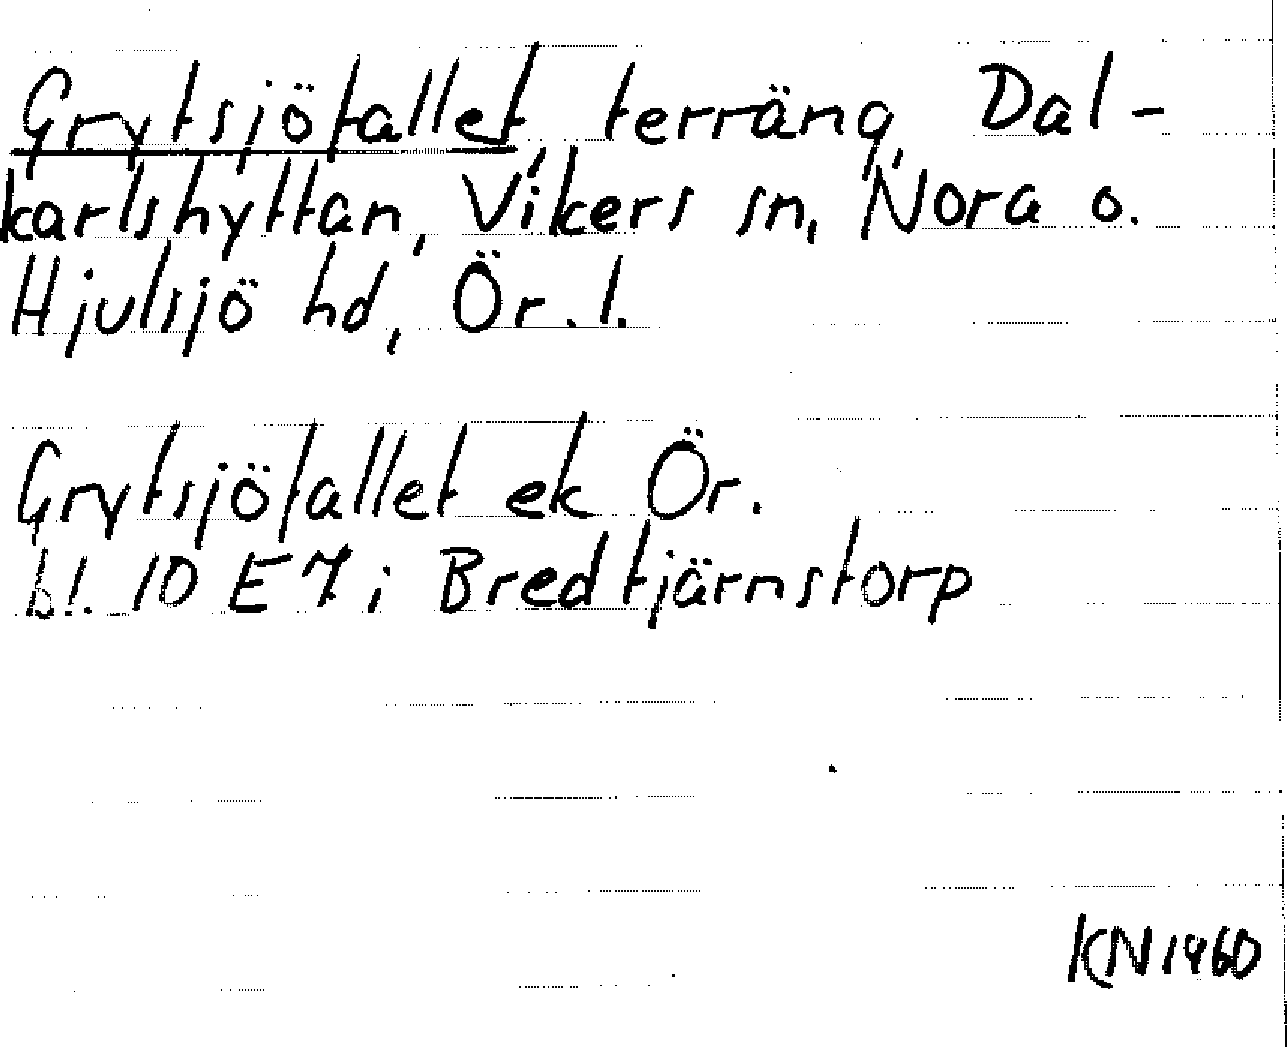 Grytsjöfallet, terräng, Dal-
karlshyttan, Vikers sn, Nora o.
Hjulsjö hd, Ör. l.
Grytsjöfallet ek Ör.
bl. 10 E 7 i Bredtjärnstorp
KN 1960